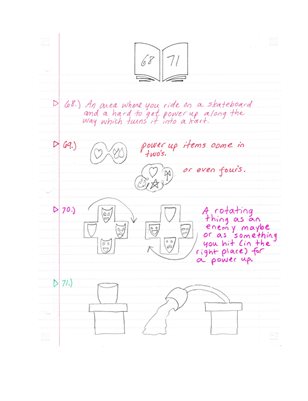 68 71
68.) An area where you ride on a skateboard
and a hard to get power up along the
way which turns it into a kart.
69.) power up items come in
two's.
or even four's.
70.) A rotating
thing as an
enemy maybe
or as something
you hit (in the
right place) for
a power up.
71.)